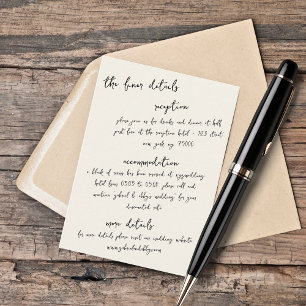 the finer details
reception
please join us for drinks and dinner at
at the reception hotel - 123 street
new york ny 75000
accommodation
a block of rooms has been reserved at
hotel from to please call and
mention gabriel & wedding for your
discounted rate
more details
for more details please visit our wedding website